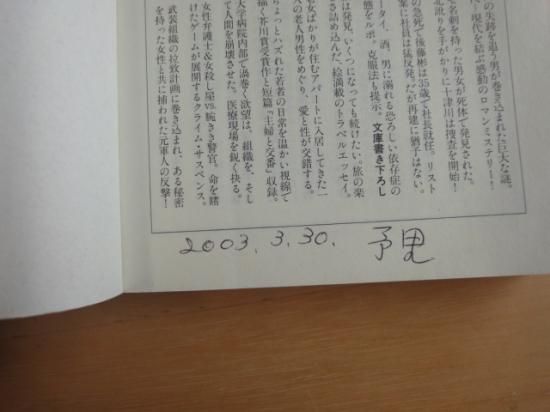 の失踪を追う男が巻き込まれた巨大な謎。
現代を結ぶ感動のロマンミステリー!
名刺を持った男女が死体で発見された。
訛りを手がかりに十津川は捜査を開始!
の急死で後藤彬は35歳で社長就任。リスト
案に社員は猛反発。だが再建に猶予はない。
ータイ、酒、男に溺れる恐ろしい依存症の
態をルポ。克服法も提示。文庫書き下ろし
は発見、いくつになっても続けたい。旅の楽
さ詰め込んだ、絵満載のトラベルエッセイ。
女ばかりが住むアパートに入居してきた一
人の老人男性をめぐり、愛と性が交錯する。
ょっとハズれた若者の日常を温かい視線で
描く芥川賞受賞作と短篇『主婦と交番』収録。
大学病院内部で渦巻く欲望は、組織を、そし
て人間を崩壊させた。医療現場を鋭く抉る。
女性弁護士&女殺し屋VS腕きき警官。命を賭
けたゲームが展開するクライム・サスペンス。
武装組織の拉致計画に巻き込まれ、ある秘密
を持った女性と共に捕われた元軍人の反撃!
2003.3.30.